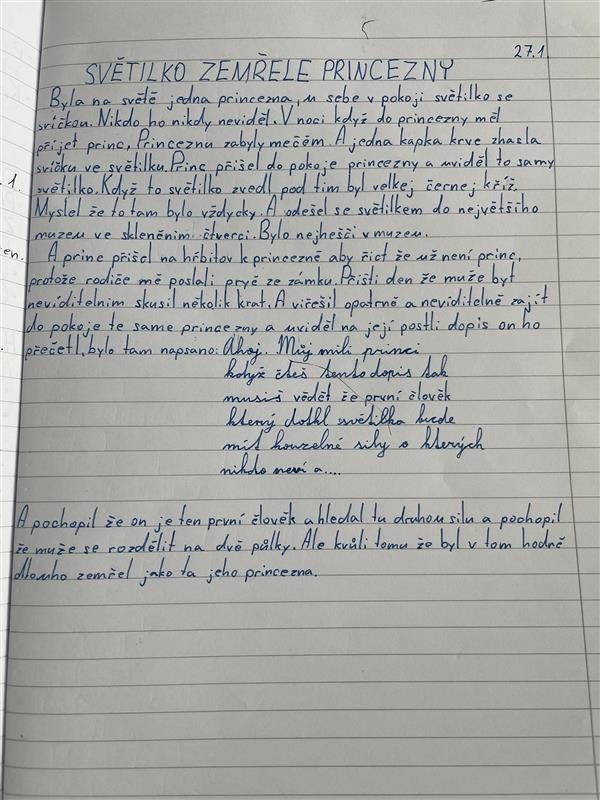 27.1.
SVĚTILKO ZEMŘELE PRINCEZNY
Byla na světě jedna princezna, u sebe v pokoji světilko se
svíčkou. Nikdo ho nikdy neviděl. V noci když do princezny měl
přijet princ, Princeznu zabyly mečém. A jedna kapka krve zhacla
svíčku ve světilku. Princ přišel do pokoje princezny a uviděl to samy
světilko. Když to světilko zvedl pod tim byl velkej černej kříž.
Myslel že to tam bylo vždycky. A odešel se světilkem do největšího
muzeu ve skleněnim čtverci. Bylo nejhešči v muzeu.
A princ přišel na hřbitov k princezně aby řict že už není princ,
protože rodiče mě poslali pryč ze zámku. Přišti den že muže byt
neviditelnim skusil několik krat. A viřešil opatrně a neviditelně zajít
do pokoje te same princezny a uviděl na její postli dopis on ho
přečetl, bylo tam napsano: Ahoj. Můj mili princi
když čteš tento dopis tak
musiš vědět že první člověk
který dotkl světilka bude
mít kouzelné sily o kterých
nikdo neví a....
A pochopil že on je ten první člověk a hledal tu druhou silu a pochopil
že muže se rozdělit na dvě půlky. Ale kvůli tomu že byl v tom hodně
dlouho zemřel jako ta jeho princezna.
1.
en.